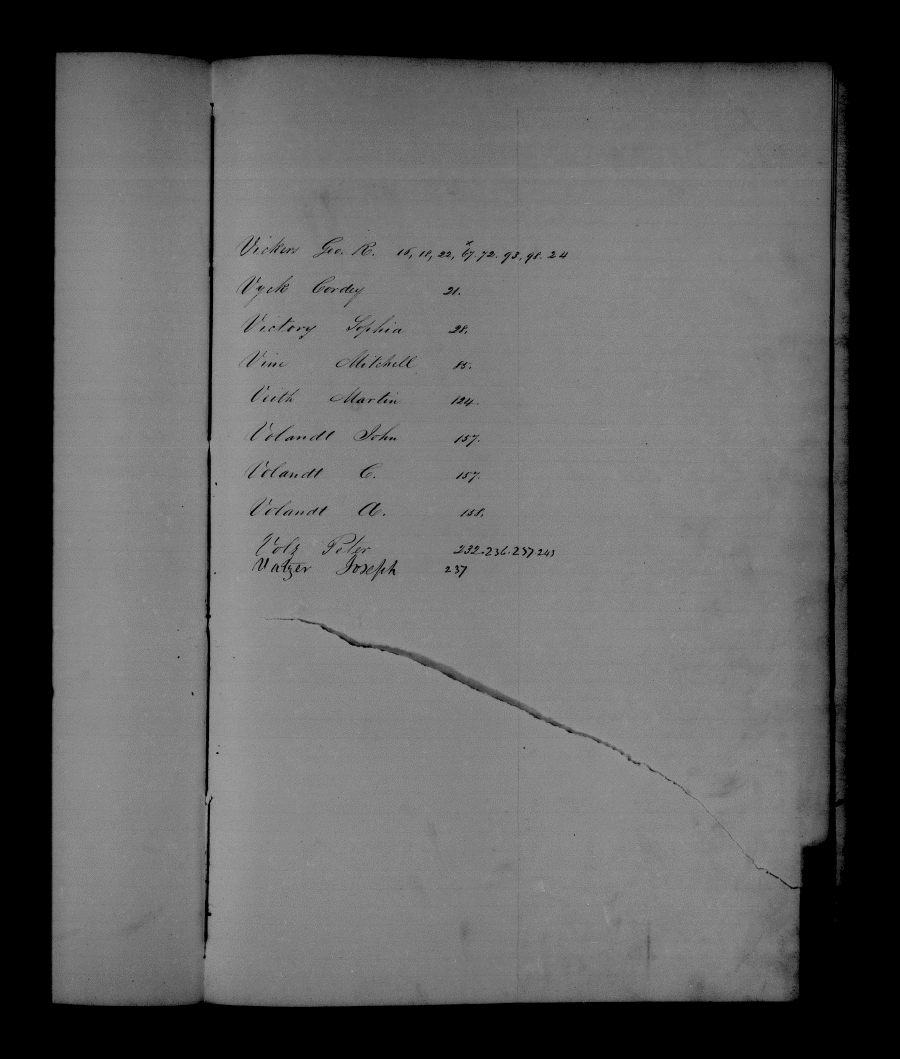 Vickers Geo. R. 15, 18, 22, 67. 72. 93. 98. 24
Vyck Cordey 21.
Victory Sophia 28.
Vine Mitchell 15.
Vieth Martin 124.
Volandt John 157.
Volandt C. 157.
Volandt A. 158.
Volz Peter 232.236.237.243
Vatzer Joseph 237